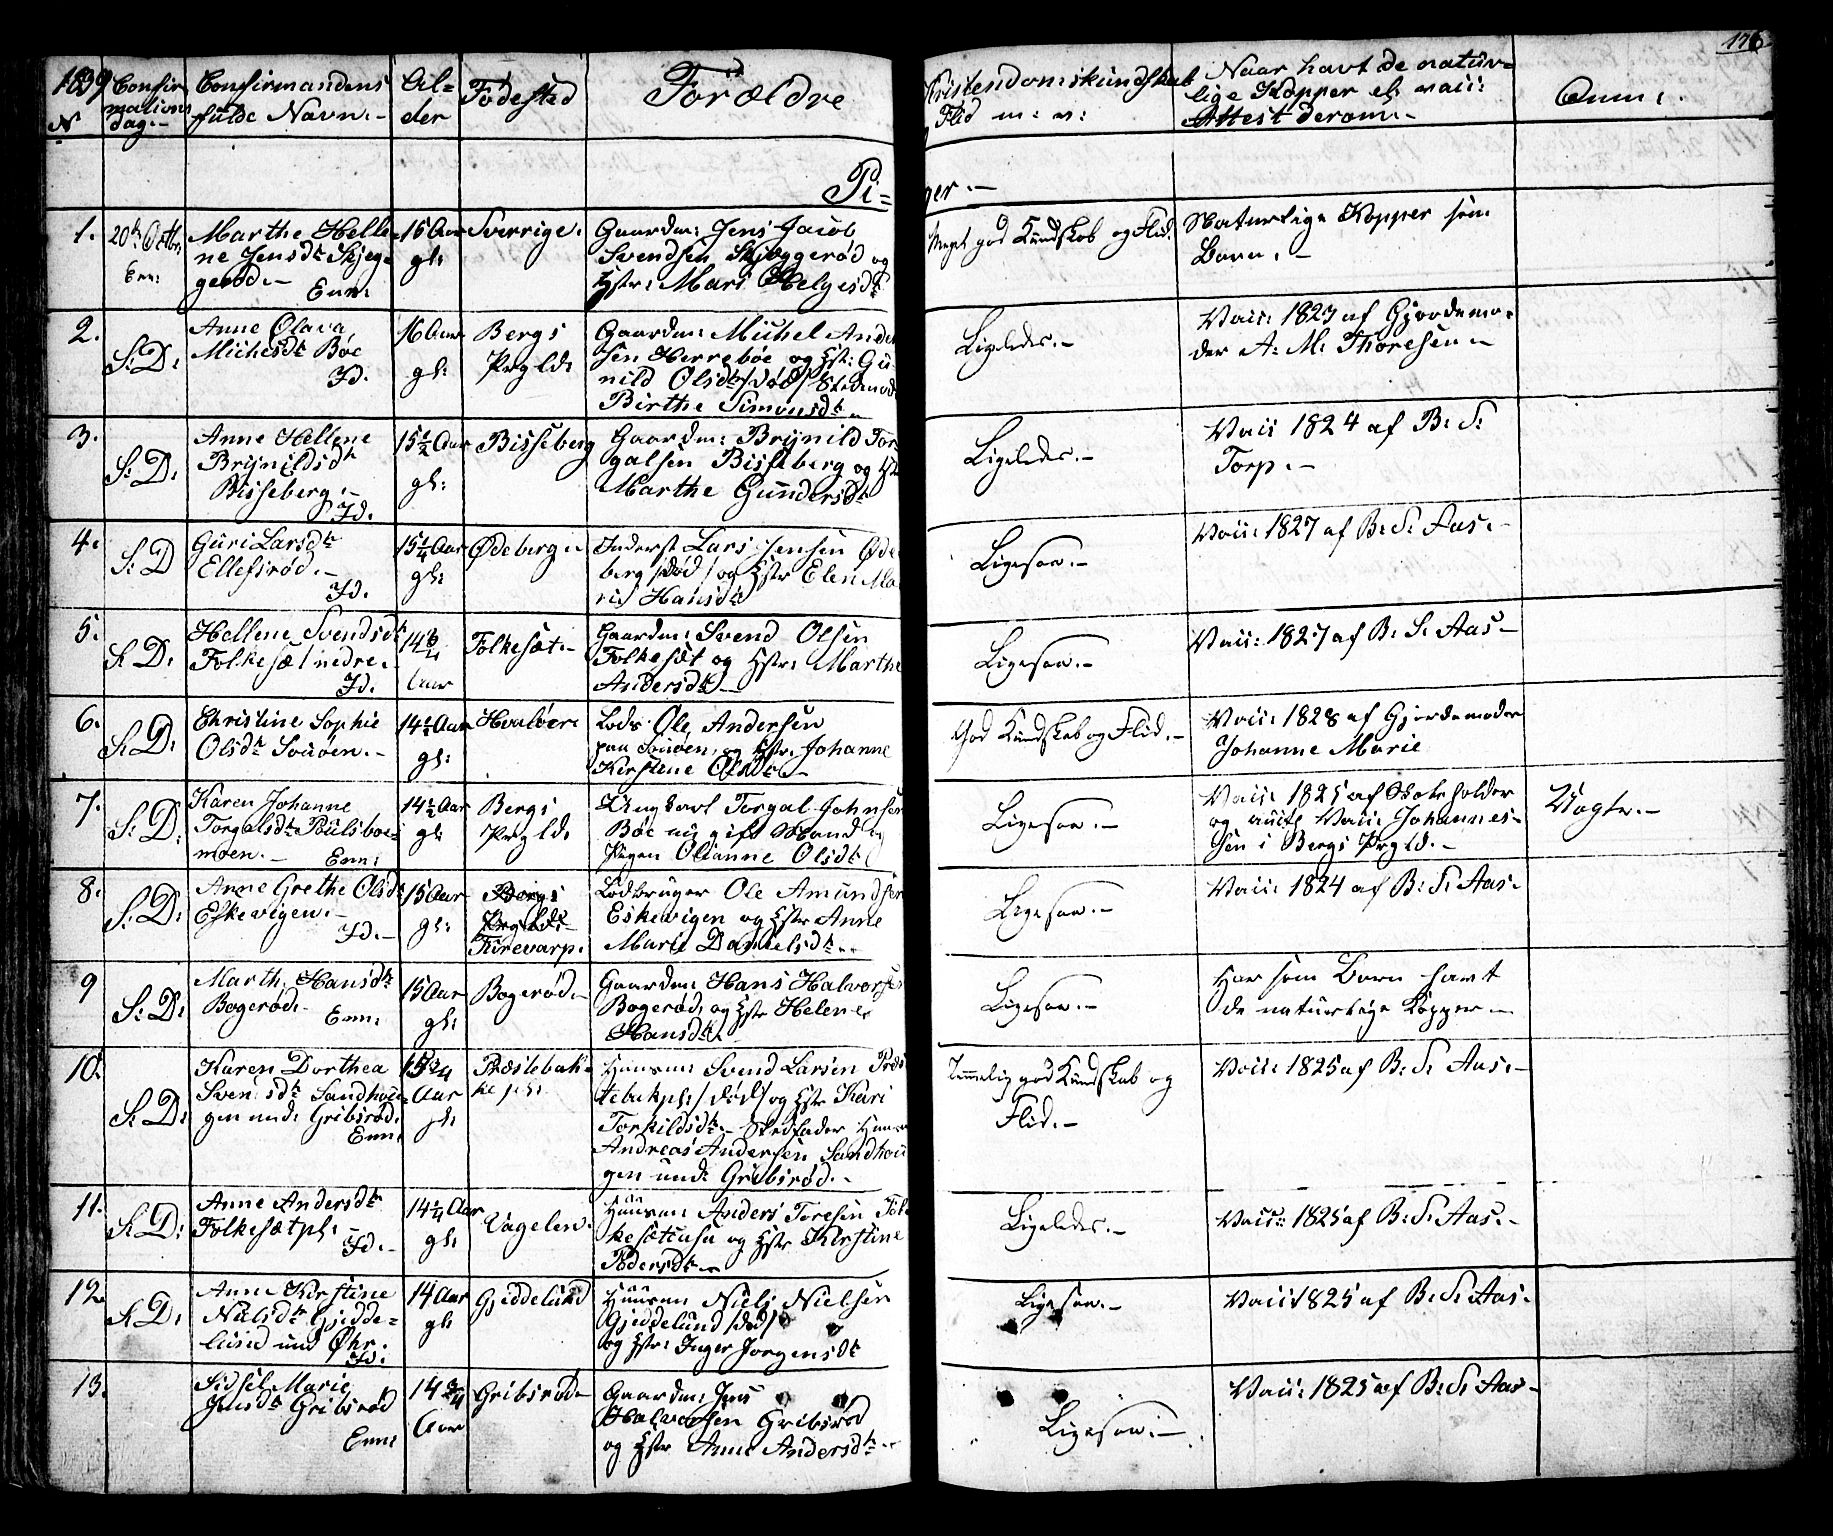 176
1839
No
Confir
mations
dag.-
Confirmandens
fulde Navn.-
Al-
der
Fødested
Forældre
Kristendomskundskab
Flid m: v:
Naar havt de natur-
lige Kopper el: vacc:
Attest derom.-
Anm:
Pi-
ger.-
1.
20de Octbr
Enn:
Marthe Helle-
ne Jensdtr Skjeg-
gerød.-
Enn:
15 Aar
gl:
Sverrige.
Gaardm: Jens Jacob
Svendsen Skjeggerød og
Hstr: Mari Helgesdtr
Meget god Kundskab og Flid.
Naturlige Kopper som
Barn.-
2.
S: D:
Anne Olava
Michelsdtr Bøe
Id.
16 Aar
gl:
Bergs
Prgld:
Gaardm: Michel Ander
sen Herrebøe og Hst: Gu-
nild Olsdtr /død/ Stedmod
Birthe Simonsdtr
Ligeledes.-
Vacc: 1827 af Gjordemo-
der A. M. Thoresen.-
3.
S: D:
Anne Hellene
Brynildsdtr
Bisseberg.-
Id.
15½ Aar
gl:
Bisseberg
Gaardm: Brynild Tor
galsen Bisseberg og Hst
Marthe Gundersdtr
Ligeledes.-
Vacc 1824 af B: S:
Torp.-
4.
S: D
Guri Larsdtr
Ellefsrød.-
Id.
15¼ Aar
gl:
Ødeberg.-
Inderst Lars Jensen Øde
berg /død/ og Hstr Elen Ma
rie Hansdtr
Ligesaa.-
Vacc: 1827 af B: S: Aas.-
5.
S: D:
Hellene Svendsdtr
Folkesæt nedre.-
Id.
14
Aar
Folkesæt.-
Gaardm: Svend Olsen
Folkesæt og Hstr: Marthe
Andersdtr
Ligesaa.-
Vacc: 1827 af B: S: Aas-
6.
S: D:
Christine Sophie
Olsdtr Souøen.-
14½ Aar
gl:
Hvaløer
Lods Ole Andersen
paa Souøen, og Hstr. Johanne
Kirstene Olsdtr
God Kundskab og Flid.-
Vacc: 1828 af Gjordemoder
Johanne Marie
7.
S: D:
Karen Johanne
Torgalsdtr Poulsboe-
moen.-
Enn:
14½ Aar
gl:
Bergs
Prgld:
Ungkarl Torgal Johnsen
Bøe nu gift Mand og
Pigen Olianne Olsdtr
Ligesaa.-
Vacc: 1825 af Skoleholder
og autl Vacc: Johannes-
sen i Bergs Prgld.-
Uægte.-
8.
S: D:
Anne Grethe Olsdtr
Eskevigen.-
Id.-
15 Aar
gl:
Bergs
Prgld:
Tirevarp.
Lodbruger Ole Amundsen
Eskevigen og Hstr Anne
Marie Danielsdtr
Ligesaa.-
Vacc: 1824 af B: S: Aas.
9
S: D:
Marth: Hansdtr
Bogerød.
Enn:
15 Aar
gl:
Bogerød.-
Gaardm: Hans Halvorsen
Bogerød, og Hstr Helene
Hansdtr
Ligesaa.-
Har som Barn havt
de naturlige Kopper.-
10.
S: D:
Karen Dorthea
Svensdtr Sandhou-
gen und: Gribsrød.
Enn:
15¾
Aar
gl:
Præstebak-
ke pl:
Huusm: Svend Larsen Præs
tebakpl: /død/ og Hstr Kari
Torkildsdtr.- Stedfader Huusm
Andreas Andersen Sandhou
gen und: Gribsrød.-
Temmelig god Kundskab og
Flid.-
Vacc: 1825 af B: S: Aas.-
11.
S: D:
Anne Andersdtr
Folkesætpl:
Id.-
14¼ Aar
gl:
Vagelen.
Huusm: Anders Toresen Fol
kesæt og Hstr Kirstine
Pedersdtr
Ligeledes.-
Vacc: 1825 af B: S: Aas.-
12.
S: D:
Anne Kirstine
Nielsdtr Gjedde-
lund und
Id:
14 Aar
gl:
Gjeddelund
Huusm Niels Nielsen
Gjeddelund /død/
og Hstr: Inger Jørgensdtr
Ligesaa.-
Vacc: 1825 af B: S: Aas.
13.
Sidsel Marie
Jensdtr Gribsrød
Enn:
14¾
Aar
Gribsrød.-
Gaardm: Jens
Halvorsen Gribsrød
og Hstr Anne Andersdtr.-
Ligesaa.-
Vacc: 1825 af B: S: Aas-